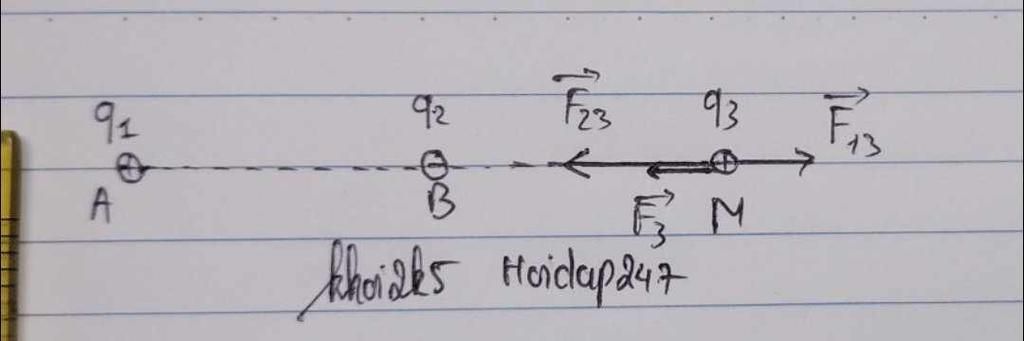 q1 q2 F23 q3 F13
⊕ ⊖ ⊕
A B F3 M
khoi2k5 Hoidap247